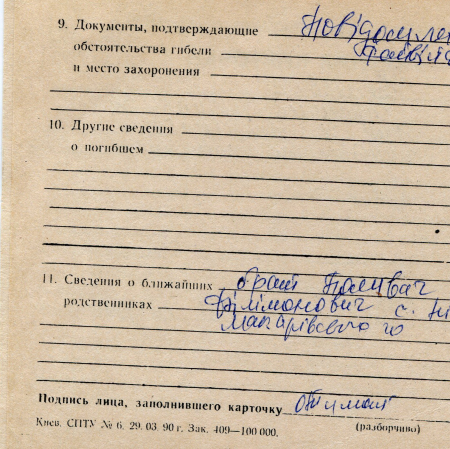 9. Документы, подтверждающие
обстоятельства гибели
и место захоронения
10. Другие сведения
о погибшем
11. Сведения о ближайших брат
родственниках Філімонович с.
Макарівського
Подпись лица, заполнившего карточку
Киев. СПТУ № 6. 29. 03. 90 г. Зак. 409—100 000. (разборчиво)